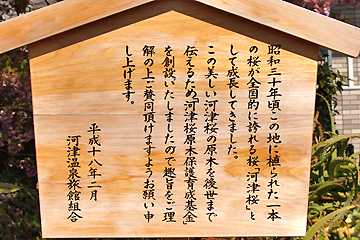 昭和三十年頃この地に植られた一本
の桜が全国的に誇れる桜「河津桜」と
して成長してきました。
この美しい河津桜の原木を後世まで
伝えるため「河津桜原木保護育成基金」
を創設いたしましたので趣旨をご理
解の上ご賛同頂けますようお願い申
し上げます。
平成十八年二月
河津温泉旅館組合